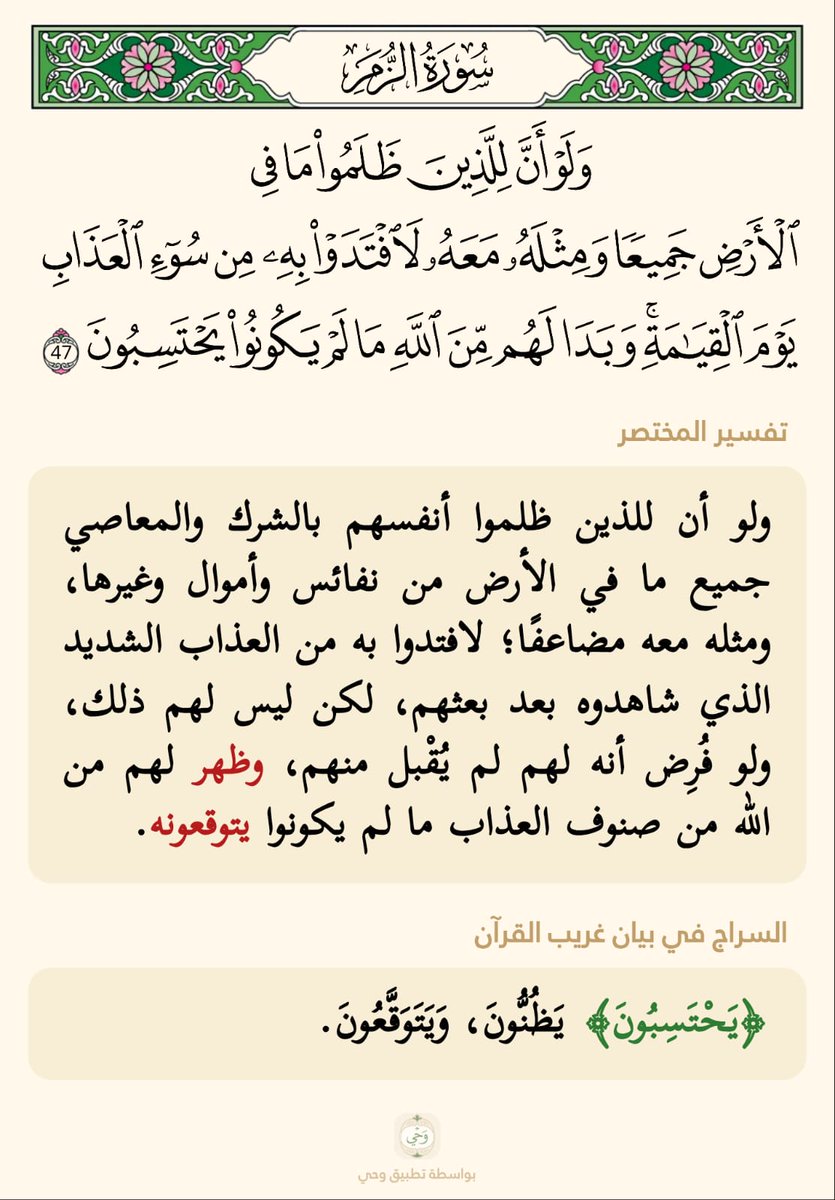 سُورَةُ الزُّمَرِ
وَلَوۡ أَنَّ لِلَّذِينَ ظَلَمُواْ مَا فِي
ٱلۡأَرۡضِ جَمِيعٗا وَمِثۡلَهُۥ مَعَهُۥ لَٱفۡتَدَوۡاْ بِهِۦ مِن سُوٓءِ ٱلۡعَذَابِ
يَوۡمَ ٱلۡقِيَٰمَةِۚ وَبَدَا لَهُم مِّنَ ٱللَّهِ مَا لَمۡ يَكُونُواْ يَحۡتَسِبُونَ 47
تفسير المختصر
ولو أن للذين ظلموا أنفسهم بالشرك والمعاصي
جميع ما في الأرض من نفائس وأموال وغيرها،
ومثله معه مضاعفًا؛ لافتدوا به من العذاب الشديد
الذي شاهدوه بعد بعثهم، لكن ليس لهم ذلك،
ولو فُرِض أنه لهم لم يُقْبل منهم، وظهر لهم من
الله من صنوف العذاب ما لم يكونوا يتوقعونه.
السراج في بيان غريب القرآن
﴿يَحْتَسِبُونَ﴾ يَظُنُّونَ، وَيَتَوَقَّعُونَ.
وَحْي
بواسطة تطبيق وحي